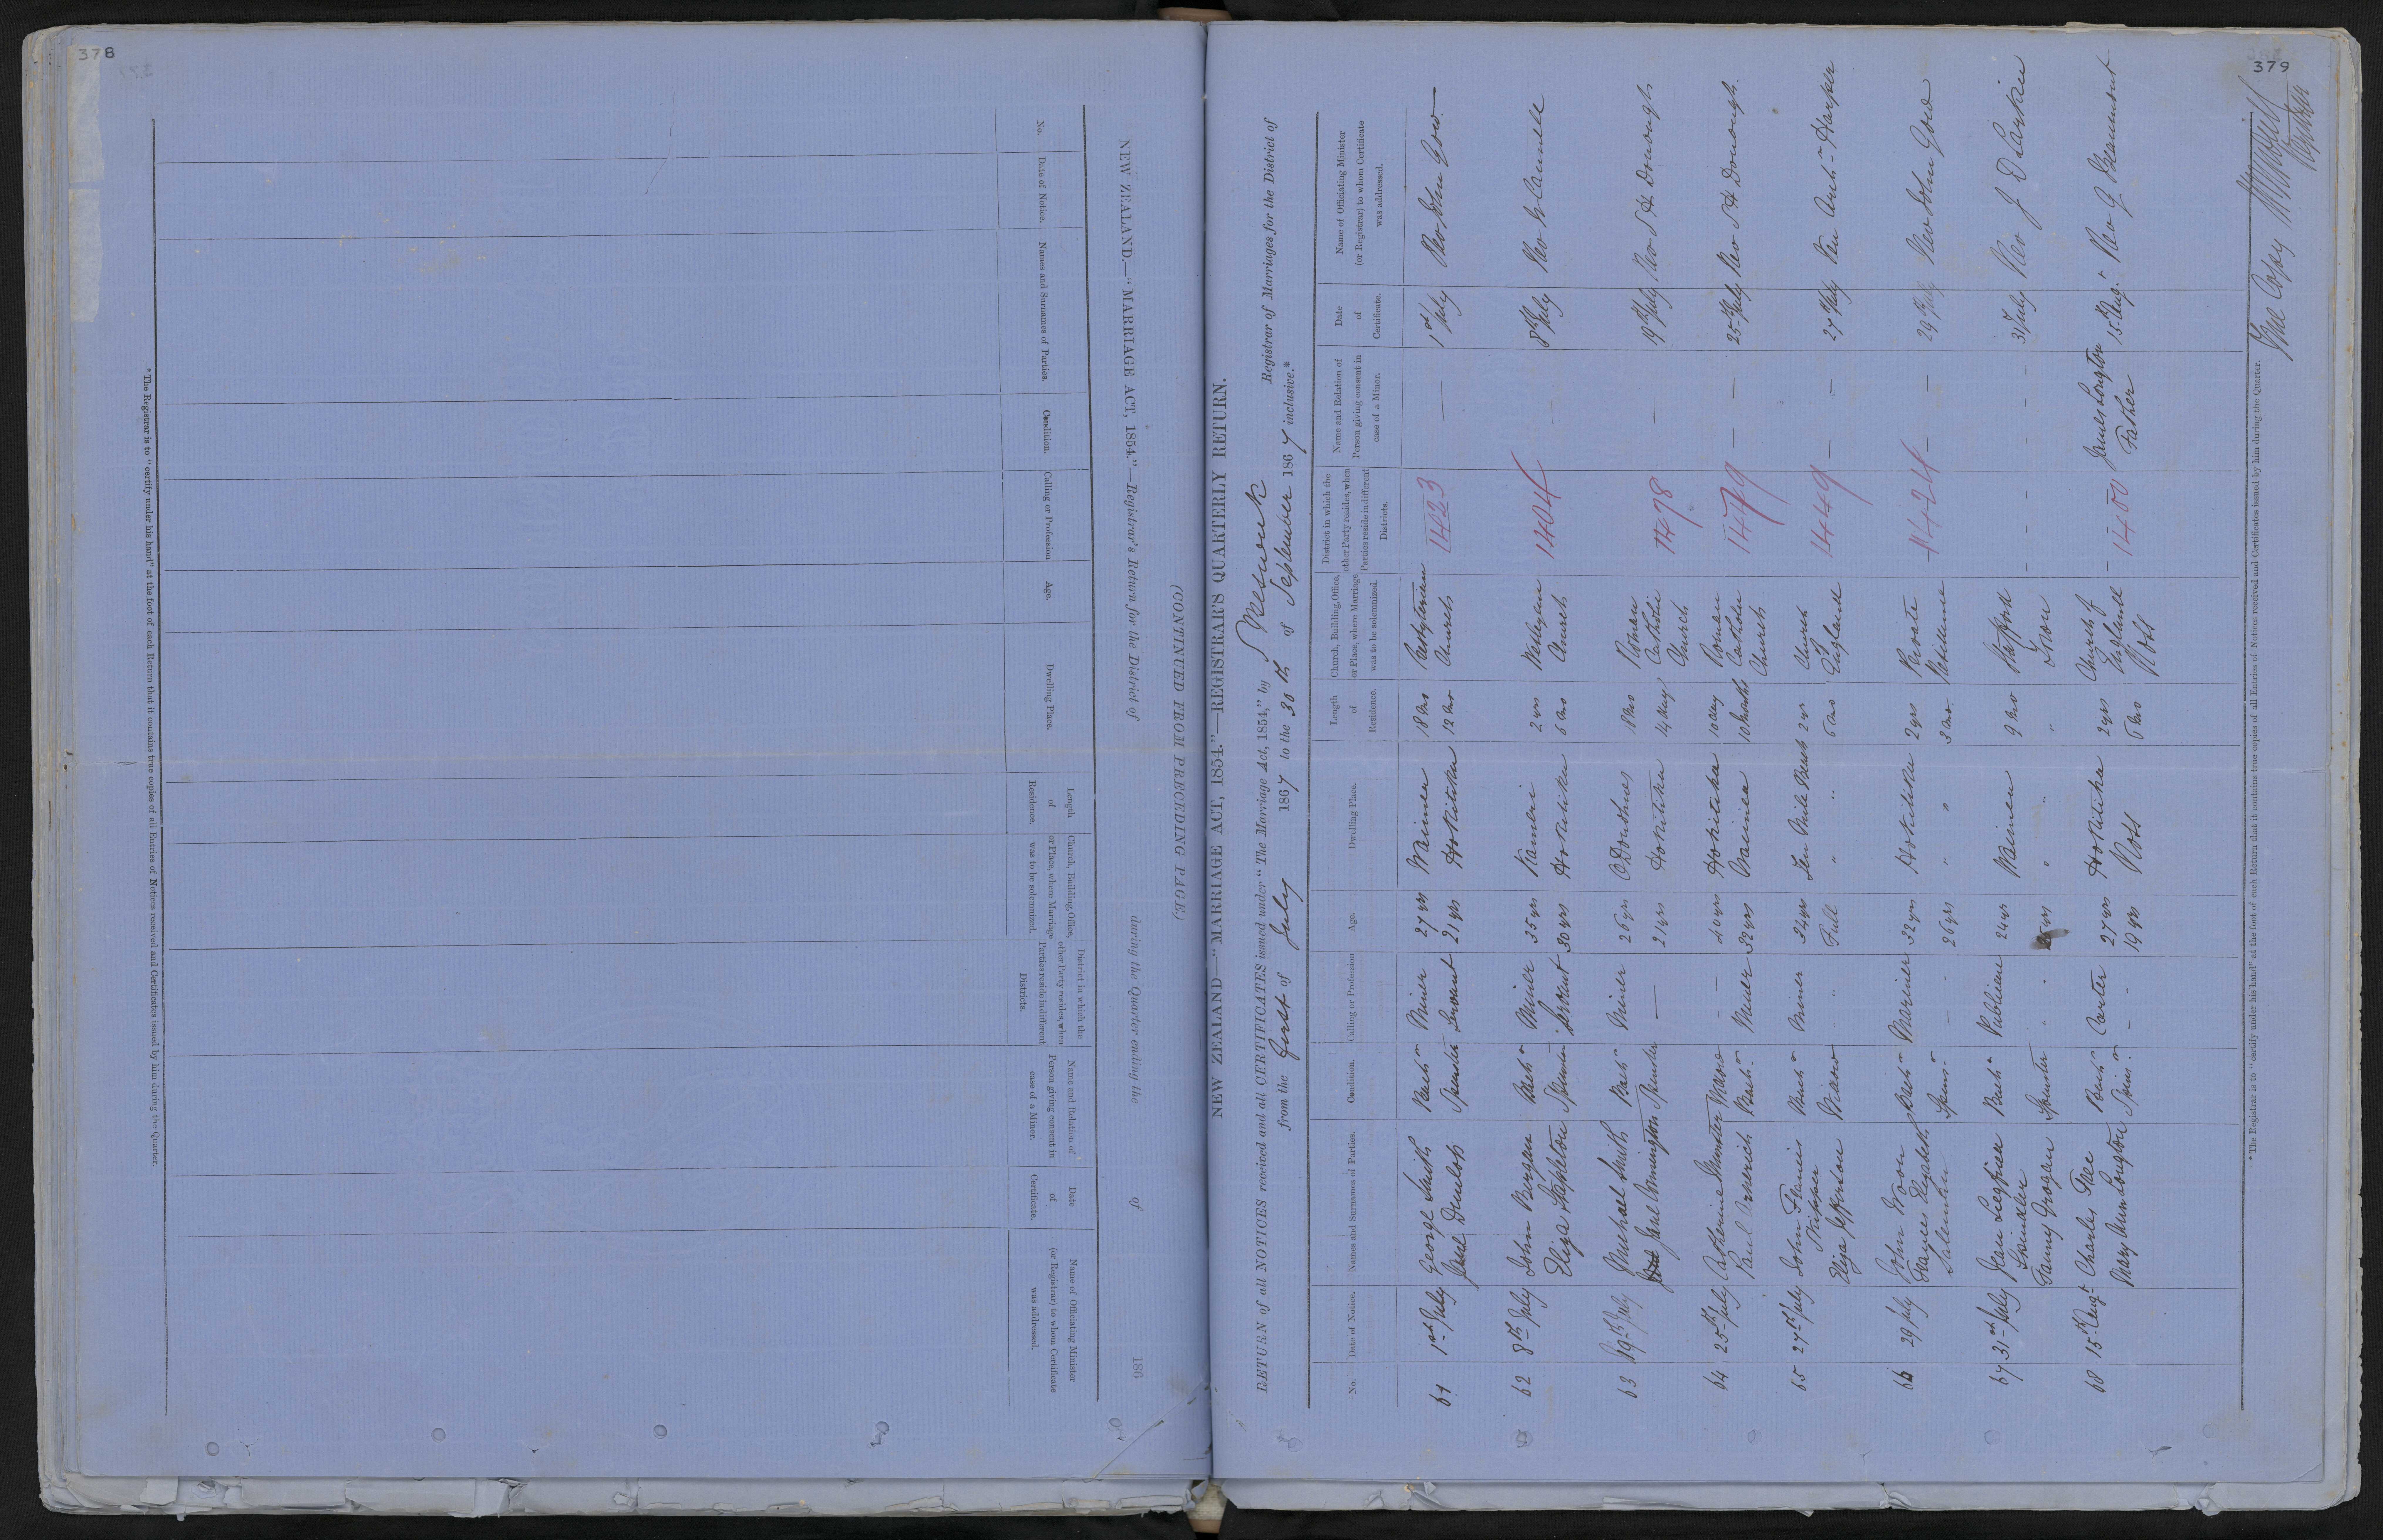 378
NEW ZEALAND.—"MARRIAGE ACT, 1854."—Registrar's Return for the District of during the Quarter ending the of 186
(CONTINUED FROM PRECEDING PAGE.)
No. Date of Notice. Names and Surnames of Parties. Condition. Calling or Profession Age. Dwelling Place. Length of Residence. Church, Building, Office, or Place, where Marriage was to be solemnized. District in which the other Party resides, when Parties reside in different Districts. Name and Relation of Person giving consent in case of a Minor. Date of Certificate. Name of Officiating Minister (or Registrar) to whom Certificate was addressed.
*The Registrar is to "certify under his hand" at the foot of each Return that it contains true copies of all Entries of Notices received and Certificates issued by him during the Quarter.
379
NEW ZEALAND—"MARRIAGE ACT, 1854."—REGISTRAR'S QUARTERLY RETURN.
RETURN of all NOTICES received and all CERTIFICATES issued under "The Marriage Act, 1854," by Registrar of Marriages for the District of
from the first of July 1867 to the 30th of September 1867 inclusive.*
No. Date of Notice. Names and Surnames of Parties. Condition. Calling or Profession Age. Dwelling Place. Length of Residence. Church, Building, Office, or Place, where Marriage was to be solemnized. District in which the other Party resides, when Parties reside in different Districts. Name and Relation of Person giving consent in case of a Minor. Date of Certificate. Name of Officiating Minister (or Registrar) to whom Certificate was addressed.
61 1st July George Smith Bachr Miner 27 yrs Waimea 18 mos Presbyterian 1423 — 1st July Rev John Gow
Jane Dunlop Spinster Servant 21 yrs Hokitika 12 mos Church
62 8th July John Bergan Bachr Miner 35 yrs Kanieri 2 yrs Wesleyan 1404 — 8th July Rev
Eliza Stapleton Spinster Servant 30 yrs Hokitika 6 mos Church
63 19th July Michael Smith Bachr Miner 26 yrs 18 mos Roman 1478 — 19th July Rev
Jane Connington Spinster — 21 yrs Hokitika 14 days Catholic
Church
64 25th July Catherine Munster Widow — 20 yrs Hokitika 10 days Roman 1479 — 25th July Rev
Paul Bachr Miner 32 yrs Waimea 10 months Catholic
Church
65 27th July John Francis Bachr Miner 34 yrs Ten Mile 2 yrs Church 1449 — 27 July Ven Archn Harper
Eliza Jefferson Widow " Full " " 6 mos of
England
66 29 July John Bachr Mariner 32 yrs Hokitika 2 yrs Private 1424 — 29 July Rev John Gow
Frances Elizabeth Spinsr - 26 yrs " " 3 mos
67 31st July Jean Bachr Publican 24 yrs Waimea 9 mos - - - - 31 July Rev J D Larkin
Fanny Grogan Spinster " " "
68 15th Augt Charles Bachr Carter 27 yrs Hokitika 2 yrs Church of 1400 James Longton 15th Augt Rev G Beaumont
Mary Ann Longton Spinsr - 19 yrs Ross 6 mos England Father
Ross
*The Registrar is to "certify under his hand" at the foot of each Return that it contains true copies of all Entries of Notices received and Certificates issued by him during the Quarter.
True Copy